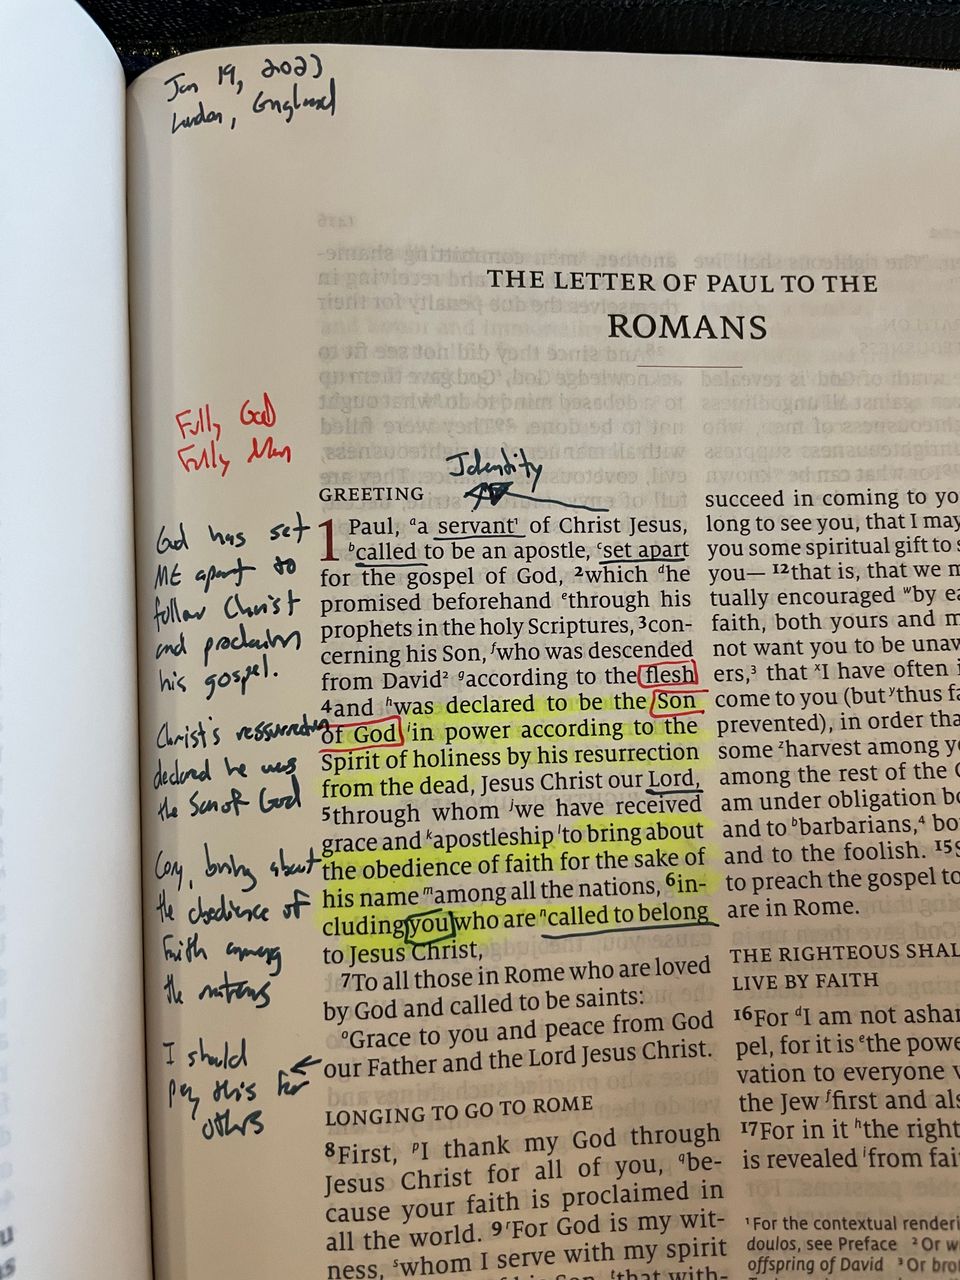 Jan 19, 2023
London, England
THE LETTER OF PAUL TO THE
ROMANS
Fully God
Fully Man
Identity
God has set
ME apart to
follow Christ
and proclaim
his gospel.
Christ's ressurrection
declared he was
the Son of God
bring about
the obedience of
faith among
the nations
I should
Pray this for
others
GREETING
1 Paul, ᵃa servant¹ of Christ Jesus,
ᵇcalled to be an apostle, ᶜset apart
for the gospel of God, ²which ᵈhe
promised beforehand ᵉthrough his
prophets in the holy Scriptures, ³con-
cerning his Son, ᶠwho was descended
from David² ᵍaccording to the flesh
⁴and ʰwas declared to be the Son
of God ⁱin power according to the
Spirit of holiness by his resurrection
from the dead, Jesus Christ our Lord,
⁵through whom ʲwe have received
grace and ᵏapostleship ˡto bring about
the obedience of faith for the sake of
his name ᵐamong all the nations, ⁶in-
cluding you who are ⁿcalled to belong
to Jesus Christ,
⁷To all those in Rome who are loved
by God and called to be saints:
ᵒGrace to you and peace from God
our Father and the Lord Jesus Christ.
LONGING TO GO TO ROME
⁸First, ᵖI thank my God through
Jesus Christ for all of you, ᑫbe-
cause your faith is proclaimed in
all the world. ⁹ʳFor God is my wit-
ness, ˢwhom I serve with my spirit
succeed in coming to yo
long to see you, that I may
you some spiritual gift to s
you— ¹²that is, that we m
tually encouraged ʷby ea
faith, both yours and m
not want you to be unaw
ers,³ that ˣI have often i
come to you (but ʸthus fa
prevented), in order tha
some ᶻharvest among yo
among the rest of the G
am under obligation bo
and to ᵇbarbarians,⁴ bo
and to the foolish. ¹⁵S
to preach the gospel to
are in Rome.
THE RIGHTEOUS SHAL
LIVE BY FAITH
¹⁶For ᵈI am not ashar
pel, for it is ᵉthe powe
vation to everyone v
the Jew ᶠfirst and als
¹⁷For in it ʰthe right
is revealed ⁱfrom fai
¹For the contextual renderi
doulos, see Preface ²Or w
offspring of David ³Or bro